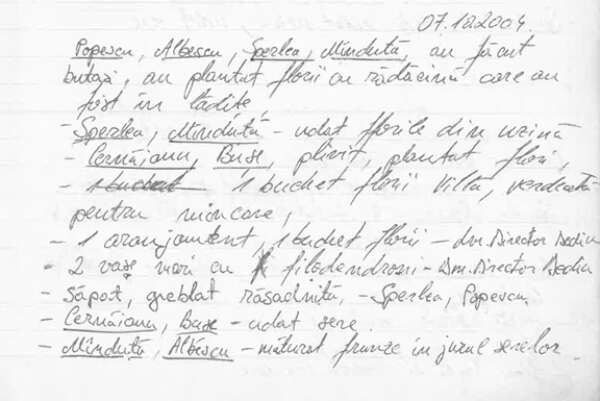 07.10.2004.
Popescu, Albescu, Sperlea, Mînduță, au făcut
butași, au plantat florii cu rădăcină care au
fost în lădițe
- Sperlea, Mînduță - udat florile din uzină
- Cernăianu, Buse, plivit, plantat flori,
- 1 buchet 1 buchet florii Villa, verdeață
pentru mîncare,
- 1 aranjament, 1 buchet florii - dm. Director Dediu
- 2 vase mari cu filodendroni - Dm. Director Dediu
- Săpat, greblat răsadniță, - Sperlea, Popescu
- Cernăianu, Buse - udat sere.
- Mînduță, Albescu - măturat frunze în jurul serelor.